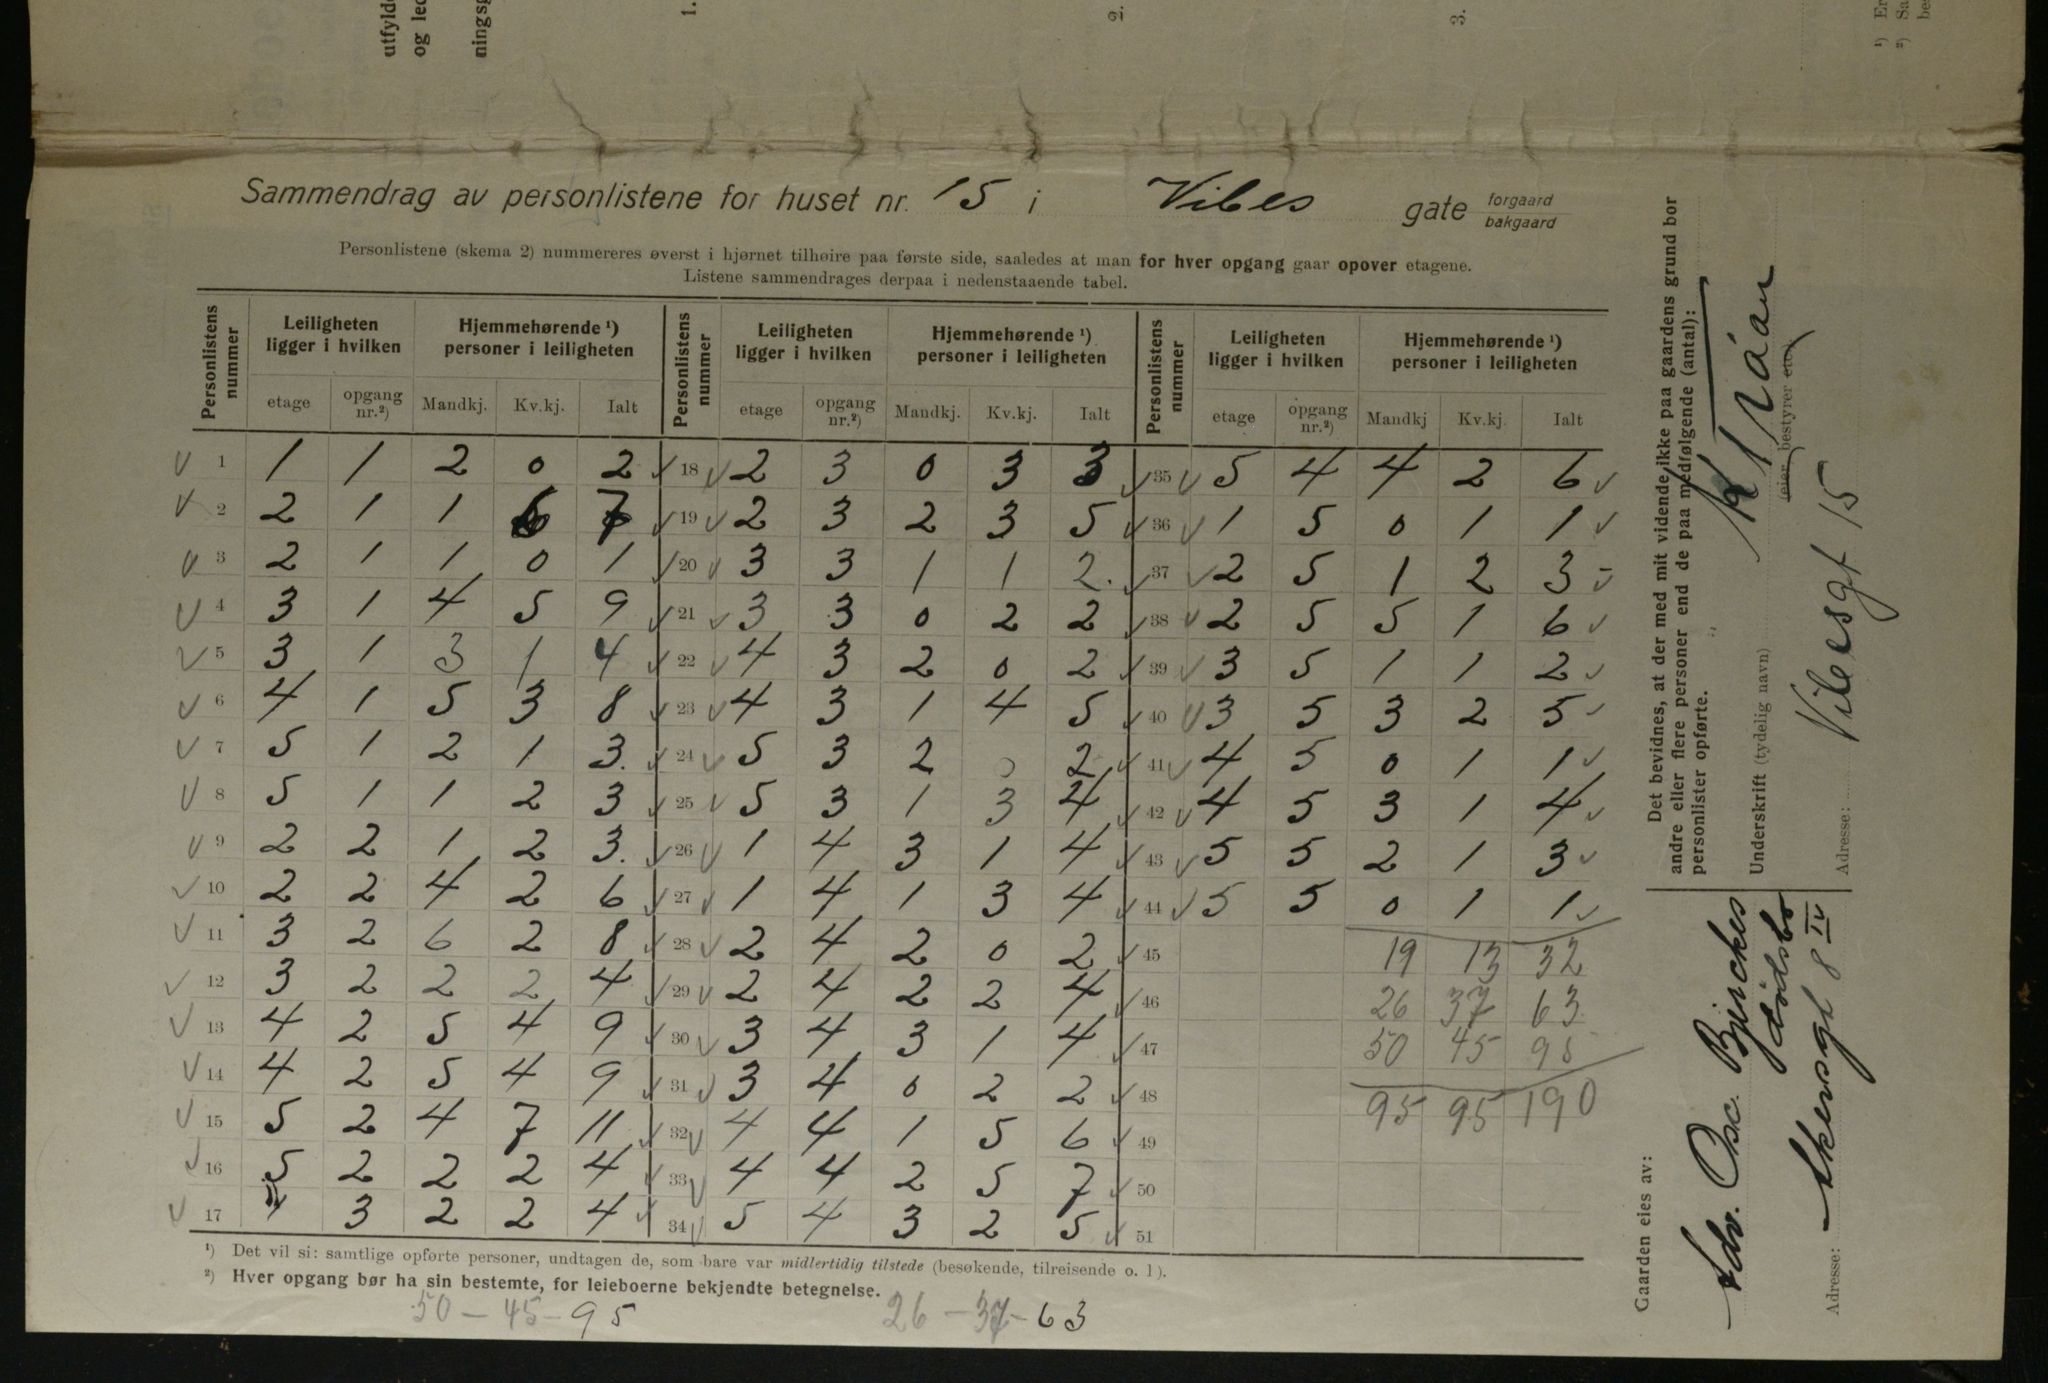 utfylde
og led
ningsg
1.
2.
3.
¹) Er
²) Sa
be
Sammendrag av personlistene for huset nr. 15 i Vibes gate forgaard / bakgaard
Personlistene (skema 2) nummereres øverst i hjørnet tilhøire paa første side, saaledes at man for hver opgang gaar opover etagene.
Listene sammendrages derpaa i nedenstaaende tabel.
Personlistens nummer | Leiligheten ligger i hvilken | Hjemmehørende ¹) personer i leiligheten | Personlistens nummer | Leiligheten ligger i hvilken | Hjemmehørende ¹) personer i leiligheten | Personlistens nummer | Leiligheten ligger i hvilken | Hjemmehørende ¹) personer i leiligheten
etage | opgang nr.²) | Mandkj. | Kv.kj. | Ialt | etage | opgang nr.²) | Mandkj. | Kv.kj. | Ialt | etage | opgang nr.²) | Mandkj | Kv.kj. | Ialt
1 | 1 | 1 | 2 | 0 | 2 | 18 | 2 | 3 | 0 | 3 | 3 | 35 | 5 | 4 | 4 | 2 | 6
2 | 2 | 1 | 1 | 6 | 7 | 19 | 2 | 3 | 2 | 3 | 5 | 36 | 1 | 5 | 0 | 1 | 1
3 | 2 | 1 | 1 | 0 | 1 | 20 | 3 | 3 | 1 | 1 | 2. | 37 | 2 | 5 | 1 | 2 | 3
4 | 3 | 1 | 4 | 5 | 9 | 21 | 3 | 3 | 0 | 2 | 2 | 38 | 2 | 5 | 5 | 1 | 6
5 | 3 | 1 | 3 | 1 | 4 | 22 | 4 | 3 | 2 | 0 | 2 | 39 | 3 | 5 | 1 | 1 | 2
6 | 4 | 1 | 5 | 3 | 8 | 23 | 4 | 3 | 1 | 4 | 5 | 40 | 3 | 5 | 3 | 2 | 5
7 | 5 | 1 | 2 | 1 | 3. | 24 | 5 | 3 | 2 | 0 | 2 | 41 | 4 | 5 | 0 | 1 | 1
8 | 5 | 1 | 1 | 2 | 3 | 25 | 5 | 3 | 1 | 3 | 4 | 42 | 4 | 5 | 3 | 1 | 4
9 | 2 | 2 | 1 | 2 | 3. | 26 | 1 | 4 | 3 | 1 | 4 | 43 | 5 | 5 | 2 | 1 | 3
10 | 2 | 2 | 4 | 2 | 6 | 27 | 1 | 4 | 1 | 3 | 4 | 44 | 5 | 5 | 0 | 1 | 1
11 | 3 | 2 | 6 | 2 | 8 | 28 | 2 | 4 | 2 | 0 | 2 | 45 | 19 | 13 | 32
12 | 3 | 2 | 2 | 2 | 4 | 29 | 2 | 4 | 2 | 2 | 4 | 46 | 26 | 37 | 63
13 | 4 | 2 | 5 | 4 | 9 | 30 | 3 | 4 | 3 | 1 | 4 | 47 | 50 | 45 | 95
14 | 4 | 2 | 5 | 4 | 9 | 31 | 3 | 4 | 0 | 2 | 2 | 48 | 95 | 95 | 190
15 | 5 | 2 | 4 | 7 | 11 | 32 | 4 | 4 | 1 | 5 | 6 | 49
16 | 5 | 2 | 2 | 2 | 4 | 33 | 4 | 4 | 2 | 5 | 7 | 50
17 | 1 | 3 | 2 | 2 | 4 | 34 | 5 | 4 | 3 | 2 | 5 | 51
¹) Det vil si: samtlige opførte personer, undtagen de, som bare var midlertidig tilstede (besøkende, tilreisende o. l).
²) Hver opgang bør ha sin bestemte, for leieboerne bekjendte betegnelse.
50 – 45 – 95
26 – 37 – 63
Det bevidnes, at der med mit vidende ikke paa gaardens grund bor
andre eller flere personer end de paa medfølgende (antal):
personlister opførte.
Underskrift (tydelig navn)
(eier, bestyrer etc.)
Adresse: Vibesgt 15
Gaarden eies av:
Adv. Osc. Bjerckes
dødsbo
Adresse: Akersgt 8 IV